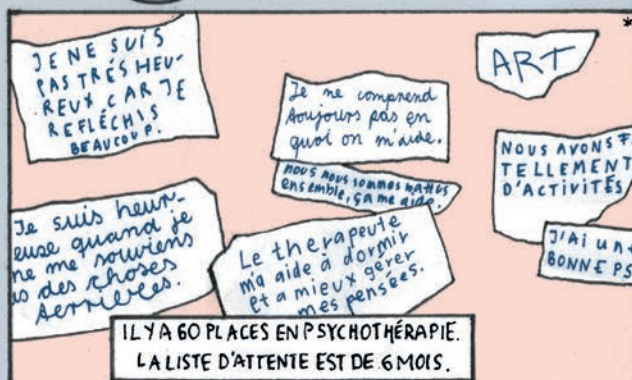 *
JE NE SUIS
PAS TRÉS HEU-
REUX CAR JE
REFLÉCHIS
BEAUCOUP.
Je ne comprend
toujours pas en
quoi on m'aide.
nous nous sommes
ensemble, ça me aide.
ART
NOUS AVONS
TELLEMENT
D'ACTIVITÉS
J'AI UN
BONNE PS
Je suis heur-
euse quand je
ne me souviens
s des choses
Le therapeute
m'a aide à dormir
et a mieux gérer
mes pensées.
IL Y A 60 PLACES EN PSYCHOTHÉRAPIE.
LA LISTE D'ATTENTE EST DE 6 MOIS.